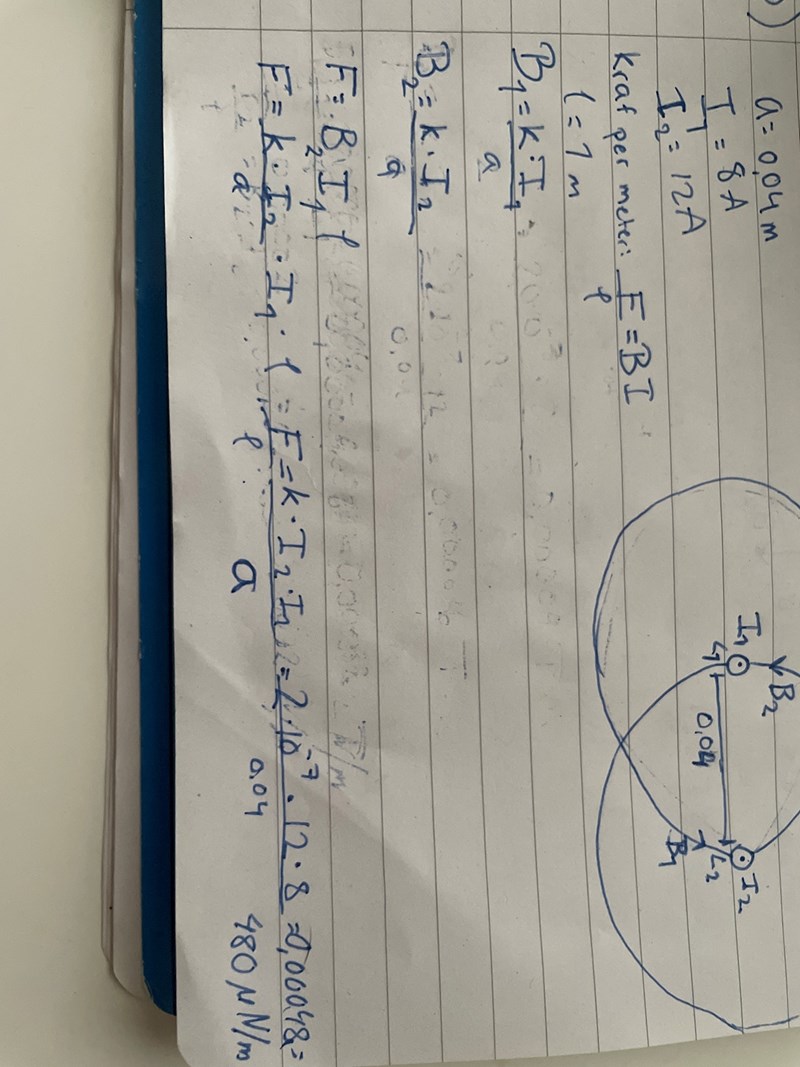 )
a = 0,04 m
I₁ = 8A
I₂ = 12A
kraf per meter: F/l = BI
l = 1 m
B₁ = k·I₁/a =
B₂ = k·I₂/a =
F = B₂ I₁ l
F = k·I₂/a · I₁ · l = F/l = k·I₂·I₁/a = 2·10⁻⁷·12·8/0,04 = 0,00048 =
480 μN/m
B₂
I₁
L₁
0,04
I₂
L₂
B₁